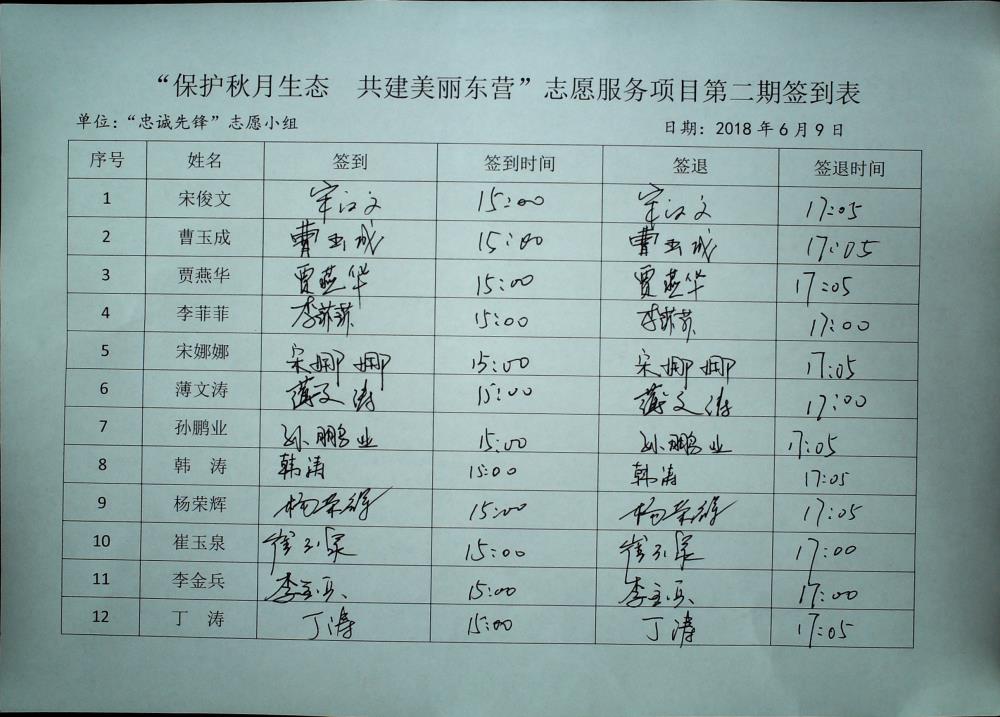 “保护秋月生态 共建美丽东营”志愿服务项目第二期签到表
单位：“忠诚先锋”志愿小组 日期：2018 年 6 月 9 日
序号 姓名 签到 签到时间 签退 签退时间
1 宋俊文 宋汶文 15:00 宋汶文 17:05
2 曹玉成 曹玉成 15:00 曹玉成 17:05
3 贾燕华 贾燕华 15:00 贾燕华 17:05
4 李菲菲 李菲菲 15:00 李菲菲 17:00
5 宋娜娜 宋娜娜 15:00 宋娜娜 17:05
6 薄文涛 薄文涛 15:00 薄文涛 17:00
7 孙鹏业 孙鹏业 15:00 孙鹏业 17:05
8 韩 涛 韩涛 15:00 韩涛 17:05
9 杨荣辉 杨荣辉 15:00 杨荣辉 17:05
10 崔玉泉 崔玉泉 15:00 崔玉泉 17:00
11 李金兵 李金兵 15:00 李金兵 17:00
12 丁 涛 丁涛 15:00 丁涛 17:05